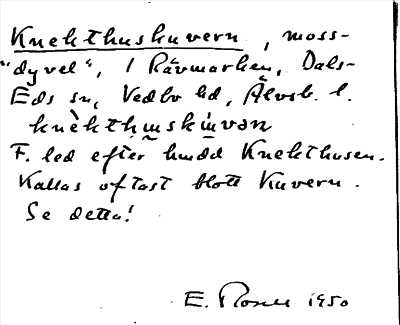 Knekthuskuvern, moss-
"dyvel", i Rävmarken, Dals-
Eds sn, Vedbo hd, Älvsb. l.
knèkthu̱skùvən
F. led efter hmdd Knekthusen.
Kallas oftast blott Kuvern.
Se detta!
E. 1950